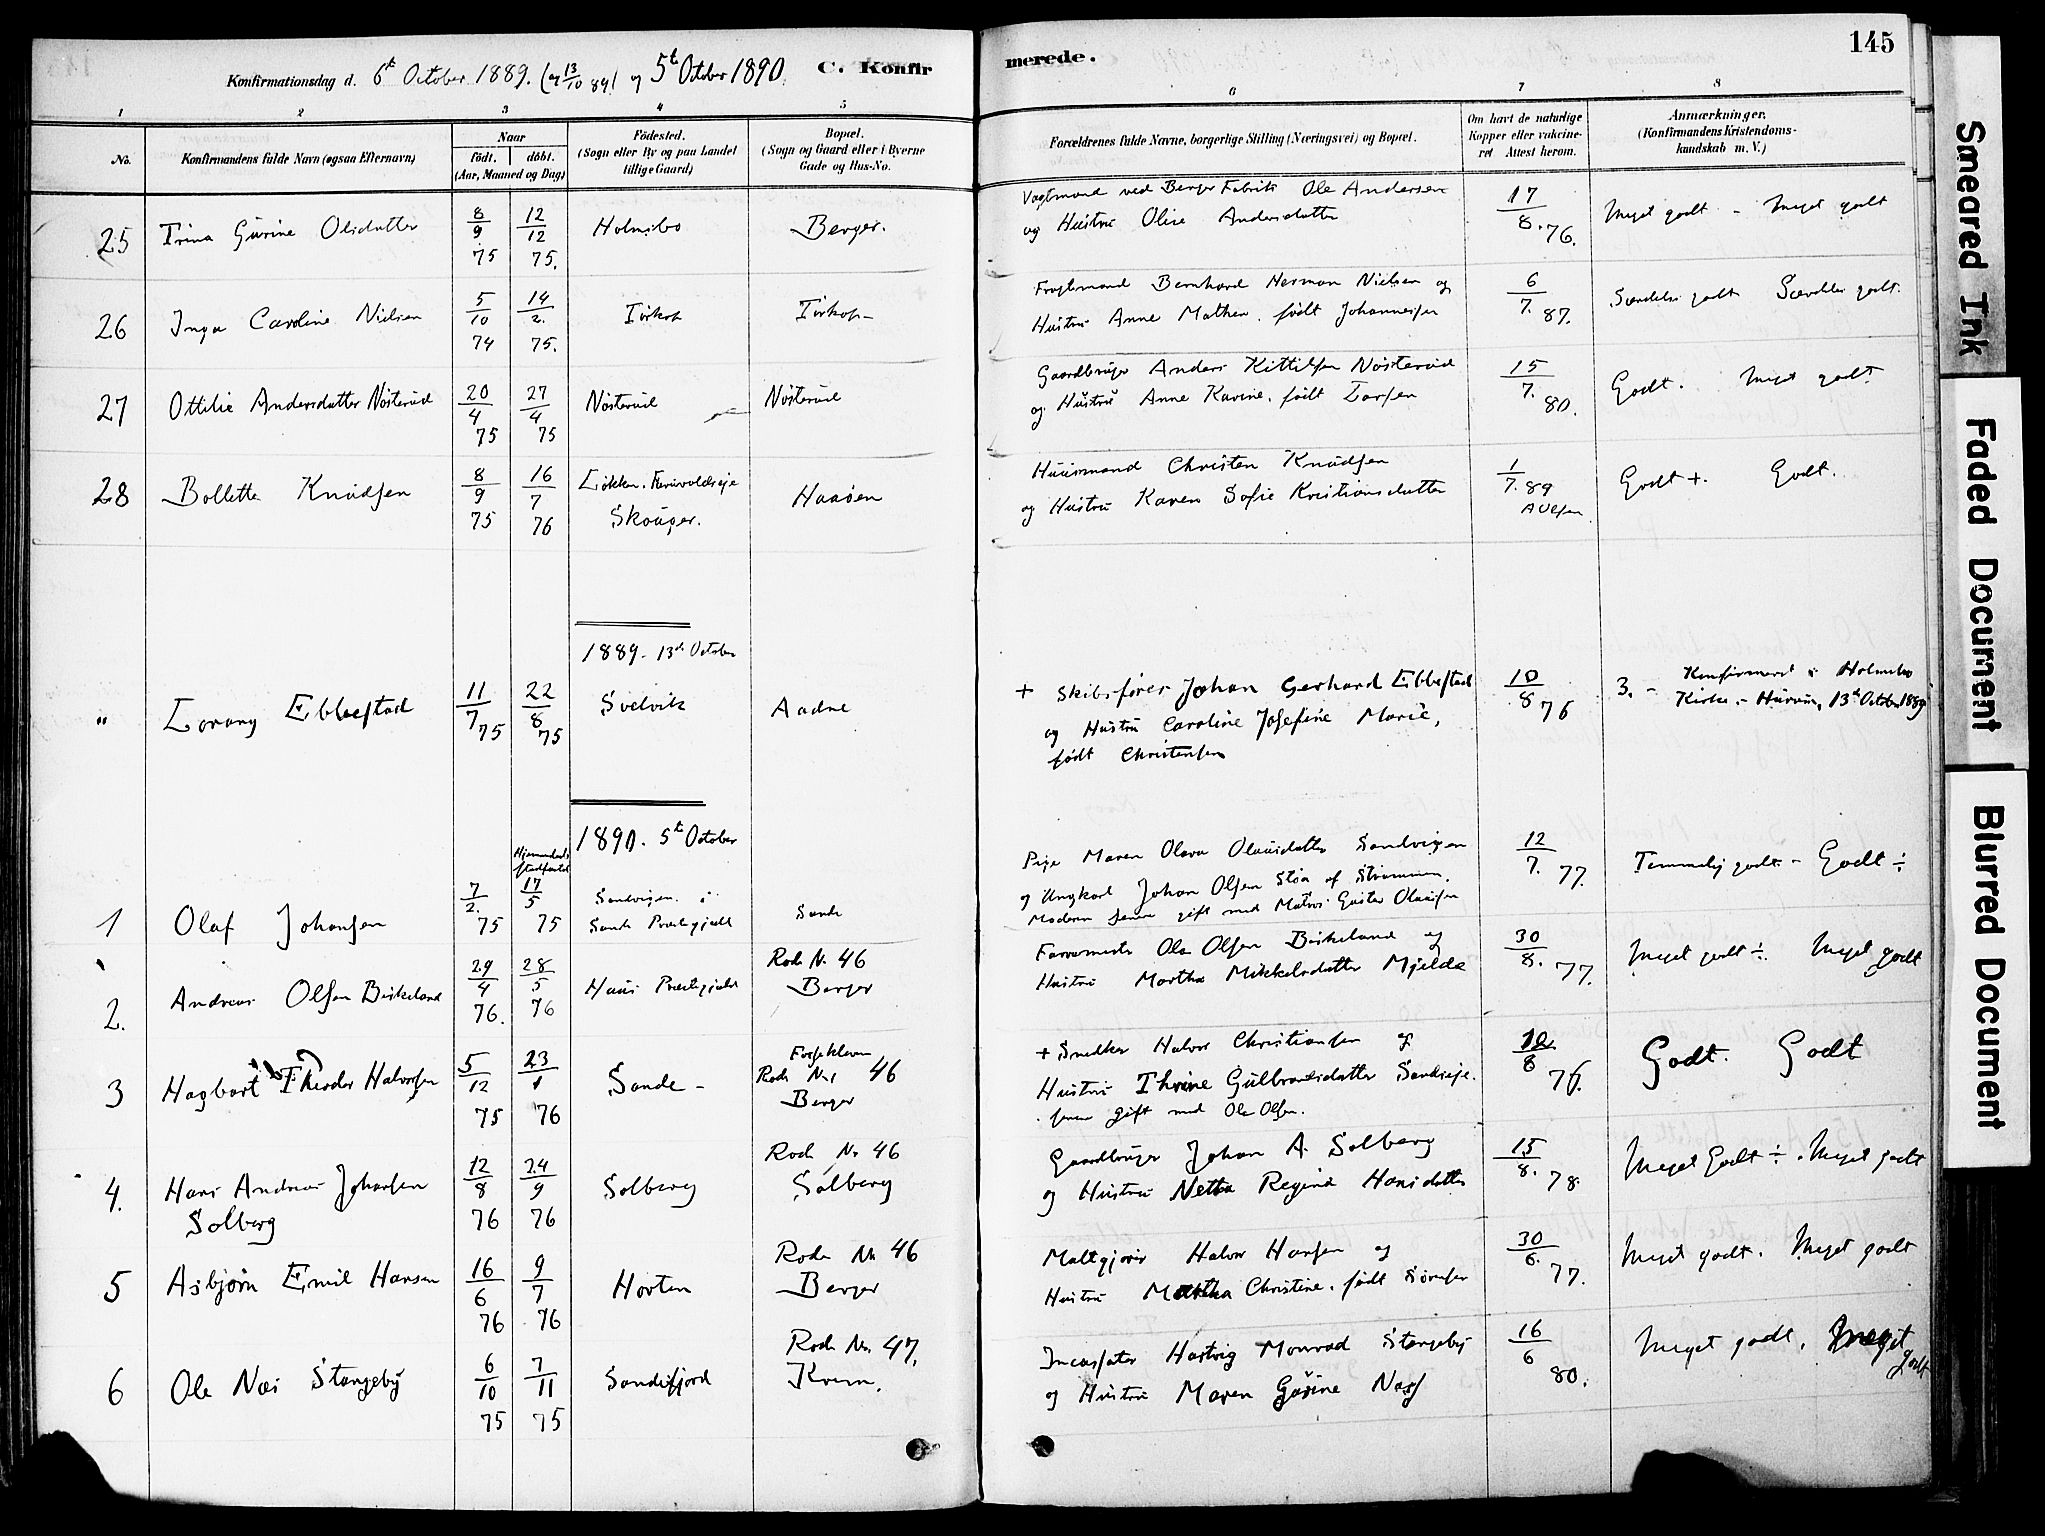 145
Konfirmationsdag d. 6t October 1889. (og 13/10 89) og 5t October 1890. C. Konfirmerede.
1 2 3 4 5 6 7 8
No.
Konfirmandens fulde Navn (ogsaa Efternavn)
Naar
født. døbt.
(Aar, Maaned og Dag)
Fødested.
(Sogn eller By og paa Landet
tillige Gaard)
Bopæl.
(Sogn og Gaard eller i Byerne
Gade og Hus-No.
Forældrenes fulde Navne, borgerlige Stilling (Næringsvei) og Bopæl.
Om havt de naturlige
Kopper eller vakcine-
ret Attest herom.
Anmærkninger.
(Konfirmandens Kristendoms-
kundskab m. V.)
25 Trina Gurine Olsdatter 8/9 75 12/12 75. Holmsbo Berger.
Vagtmand ved Berger Fabrik Ole Andersen
og Hustru Olise Andersdatter
17/8. 76. Meget godt - Meget godt
26 Inga Caroline Nielsen 5/10 74 14/2. 75. Tørkop Tørkop
Fragtemand Bernhard Herman Nielsen og
Hustru Anne Mathea, født Johannesen
6/7. 87. Særdeles godt Særdeles godt.
27 Ottilie Andersdatter Nøsterud 20/4 75 27/4 75 Nøsterud Nøsterud
Gaardbruger Anders Kittilsen Nøsterud
og Hustru Anne Karine, født Larsen
15/7. 80. Godt. Meget godt.
28 Bollette Knudsen 8/9 75 16/7 76 Løkken,
Skouger. Haaøen
Huusmand Christen Knudsen
og Hustru Karen Sofie Kristiansdatter
1/7. 89 Godt +. Godt.
1889 - 13de October
" Lorang Ebbestad 11/7 75 22/8 75 Svelvik Aadne
+ Skibsfører Johan Gerhard Ebbestad
og Hustru Caroline Josefine Marie,
født Christensen
10/8 76 3. - Konfirmeret i Holmsbo
Kirke - Hurum, 13de October 1889
1890. 5t October
1 Olaf Johansen 7/2. 75 17/5 75 Sandvigen i
Sande Præstegjeld Sande
Pige Maren Olava Olausdatter Sandvigen
og Ungkarl Johan Olsen Støa af Strømmen.
Moderen senere gift med Matros Gustav Olausen
12/7. 77. Temmelig godt - Godt ÷
2. Andreas Olsen Birkeland 29/4 76. 28/5 76 Haus Præstegjeld Rode No 46
Berger
Farvermester Ole Olsen Birkeland og
Hustru Martha Mikkelsdatter Mjelde
30/8. 77. Meget godt ÷. Meget godt
3 Hagbart Theodor Halvorsen 5/12 75 23/1 76 Sande - Fosseklevn
Rode No 46
Berger
+ Snedker Halvor Christiansen og
Hustru Thrine Gulbrandsdatter Sandseje.
senere gift med Ole Olsen.
76. Godt. Godt
4. Hans Andreas Johansen
Solberg 12/8 76 24/9 76 Solberg Rode No 46
Solberg
Gaardbruger Johan A. Solberg
og Hustru Netta Regine Hansdatter
15/8. 78. Meget Godt ÷. Meget godt
5 Asbjørn Emil Hansen 16/6 76 9/7 76 Horten Rode No 46
Berger
Maltgjører Halvor Hansen og
Hustru Martha Christine, født Sørensen
30/6. 77. Meget godt. Meget godt
6 Ole Næs Stangeby 6/10 75 7/11 75 Sandefjord Rode No 47.
Kvern.
Incassator Hartvig Monrad Stangeby
og Hustru Maren Gurine Næss
16/6 80. Meget godt. Meget godt
Smeared Ink
Faded Document
Blurred Document